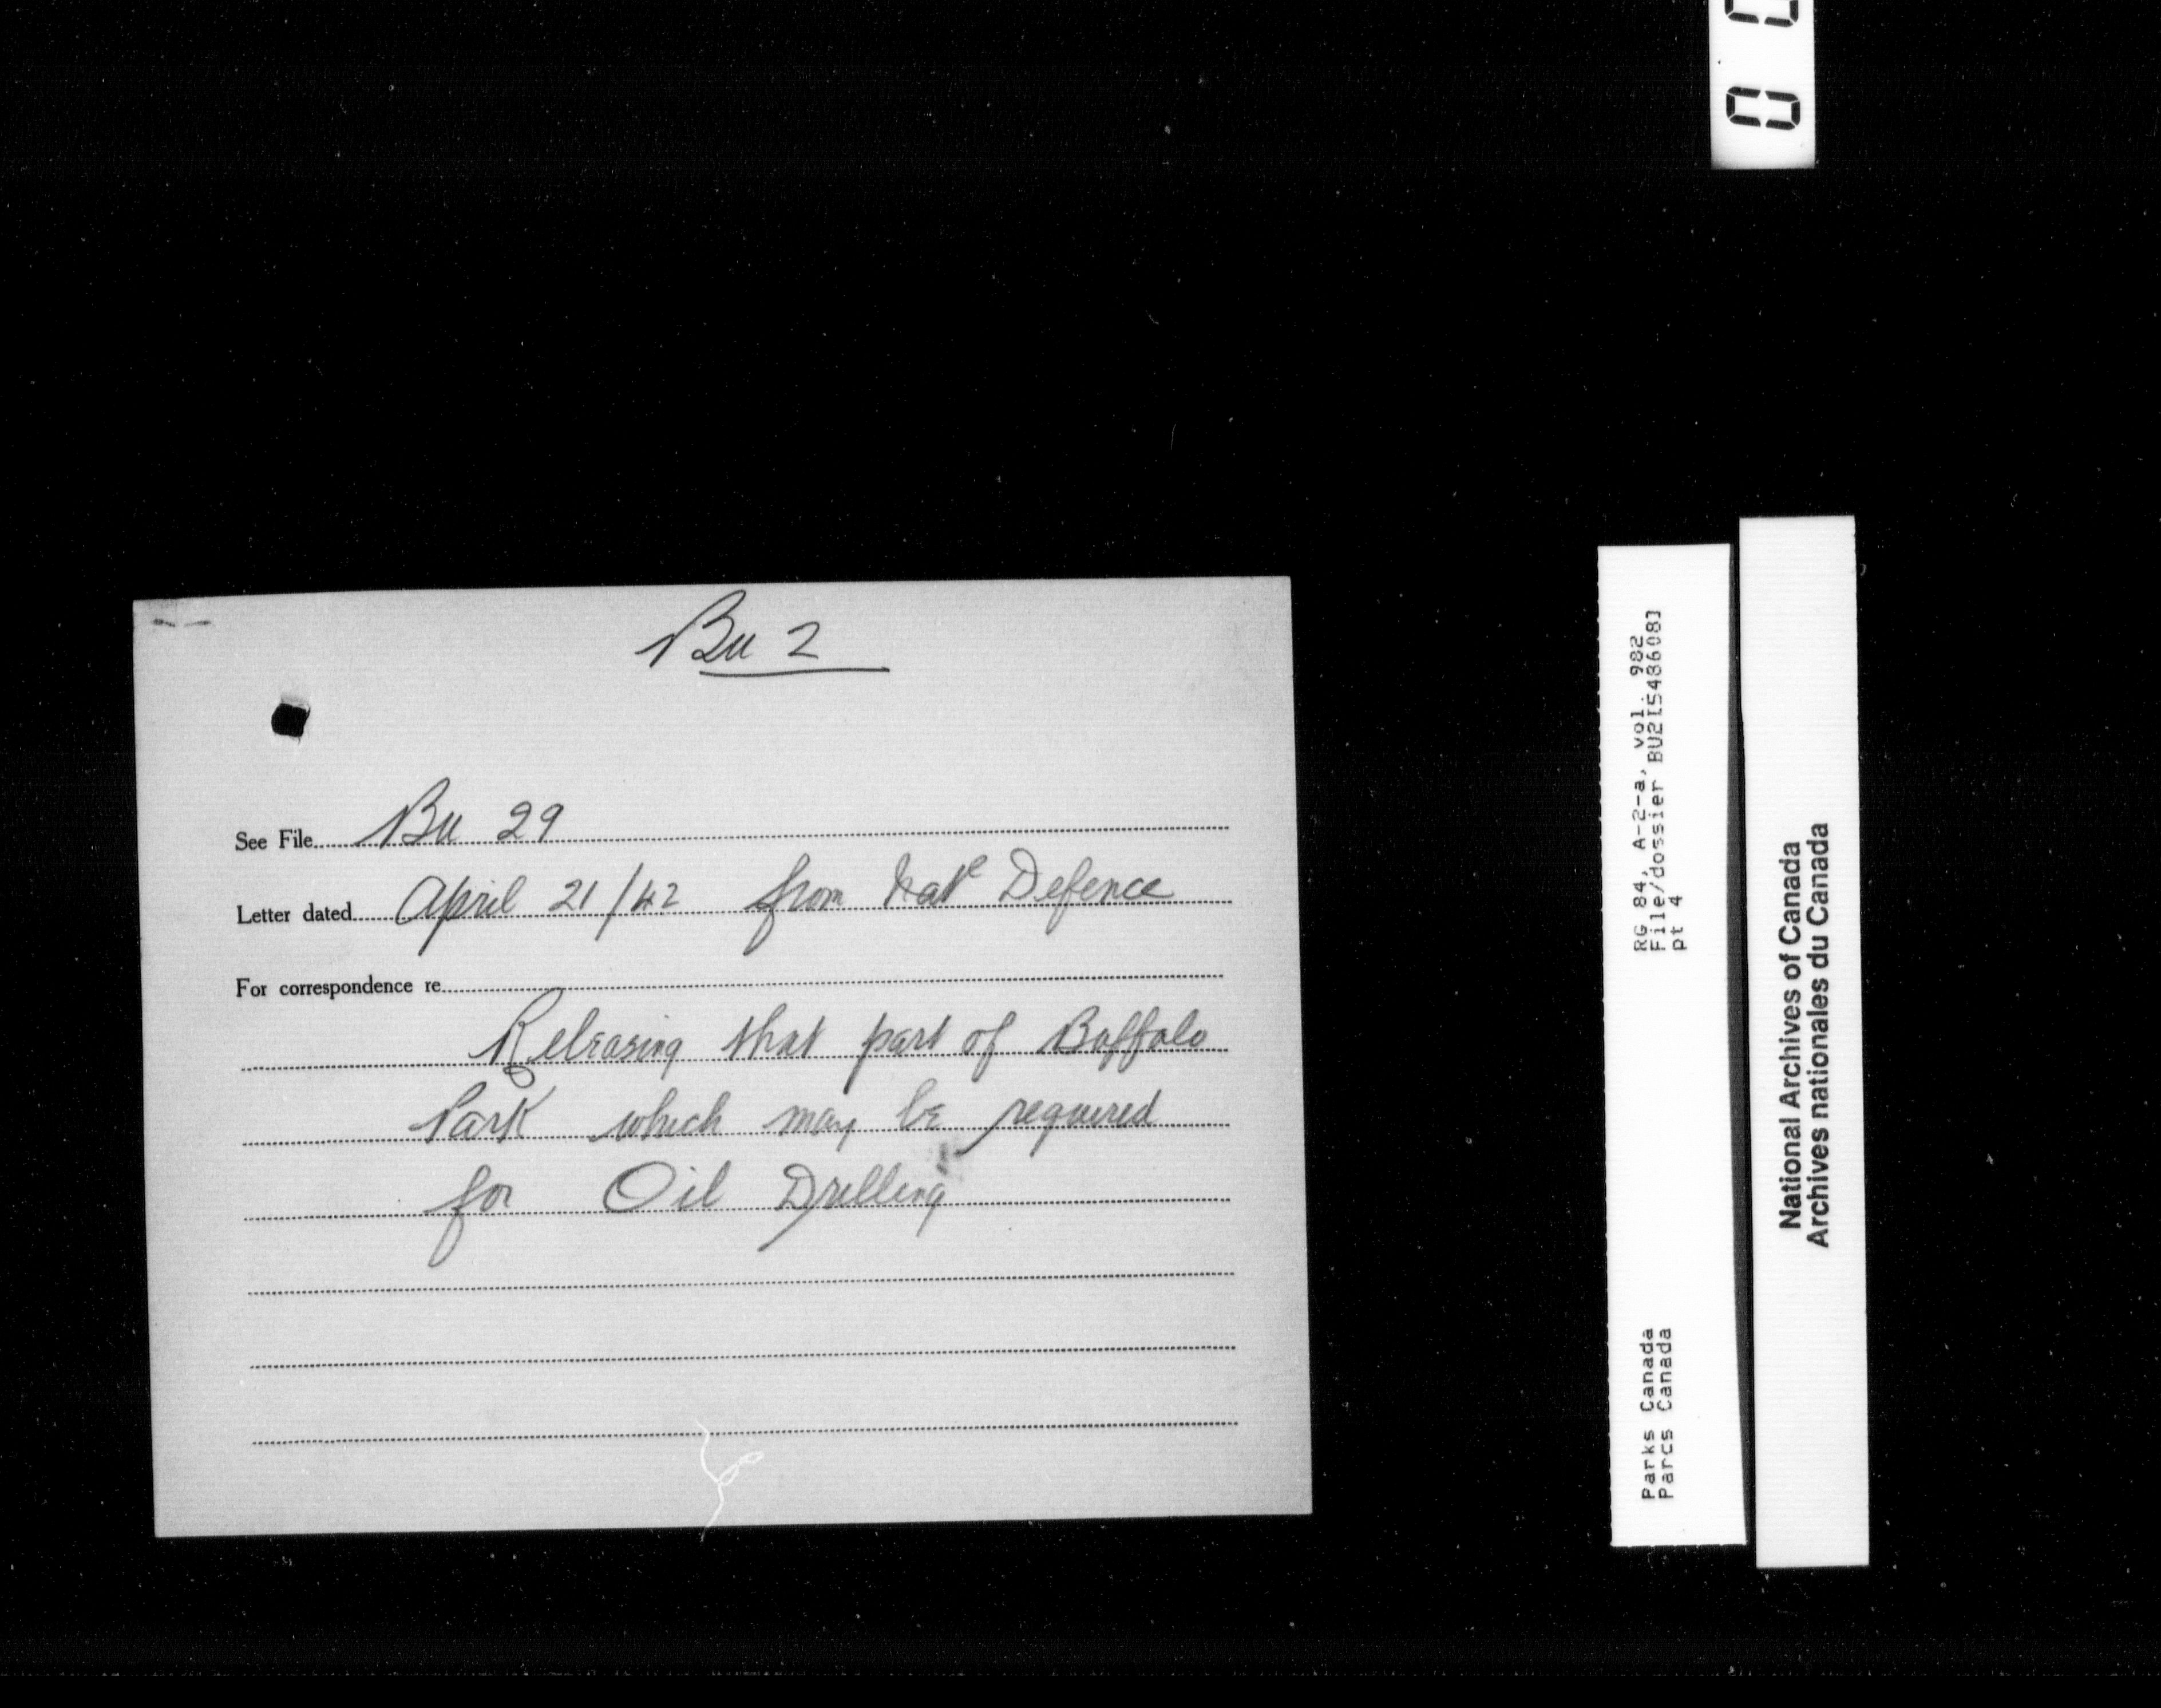 Bu 2
See File Bu 29
Letter dated April 21/42 from Nat'l Defence
For correspondence re
Releasing that part of Buffalo
Park which may be required
for Oil Drilling
RG 84, A-2-a, vol. 982
File/dossier BU2[5486083]
pt 4
Parks Canada
Parcs Canada
National Archives of Canada
Archives nationales du Canada